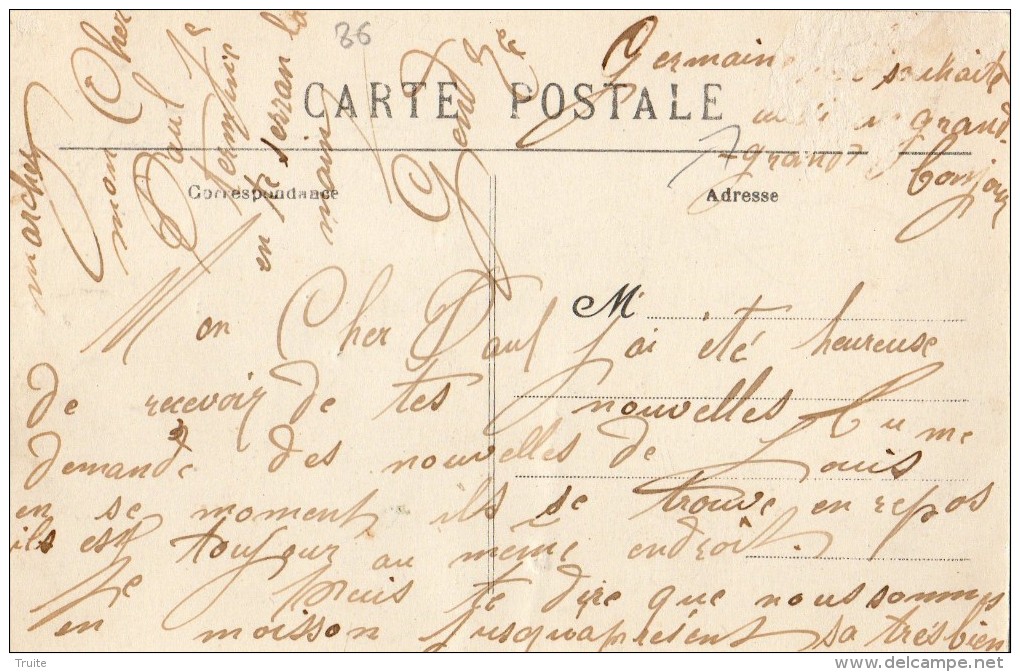 36
CARTE POSTALE
Correspondance
Adresse
M
Mon Cher Paul J'ai été heureuse
de recevoir de tes nouvelles tu me
demande des nouvelles de Louis
en se moment ils se trouve en repos
ils est toujour au même endroit.
Je puis te dire que nous sommes
en moisson jusqu'aprésent sa très bien
marcher
mon Cher
Paul Je
termine
en te serran la
main
Germaine souhaite
grand
bonjour
Truite
www.delcampe.net